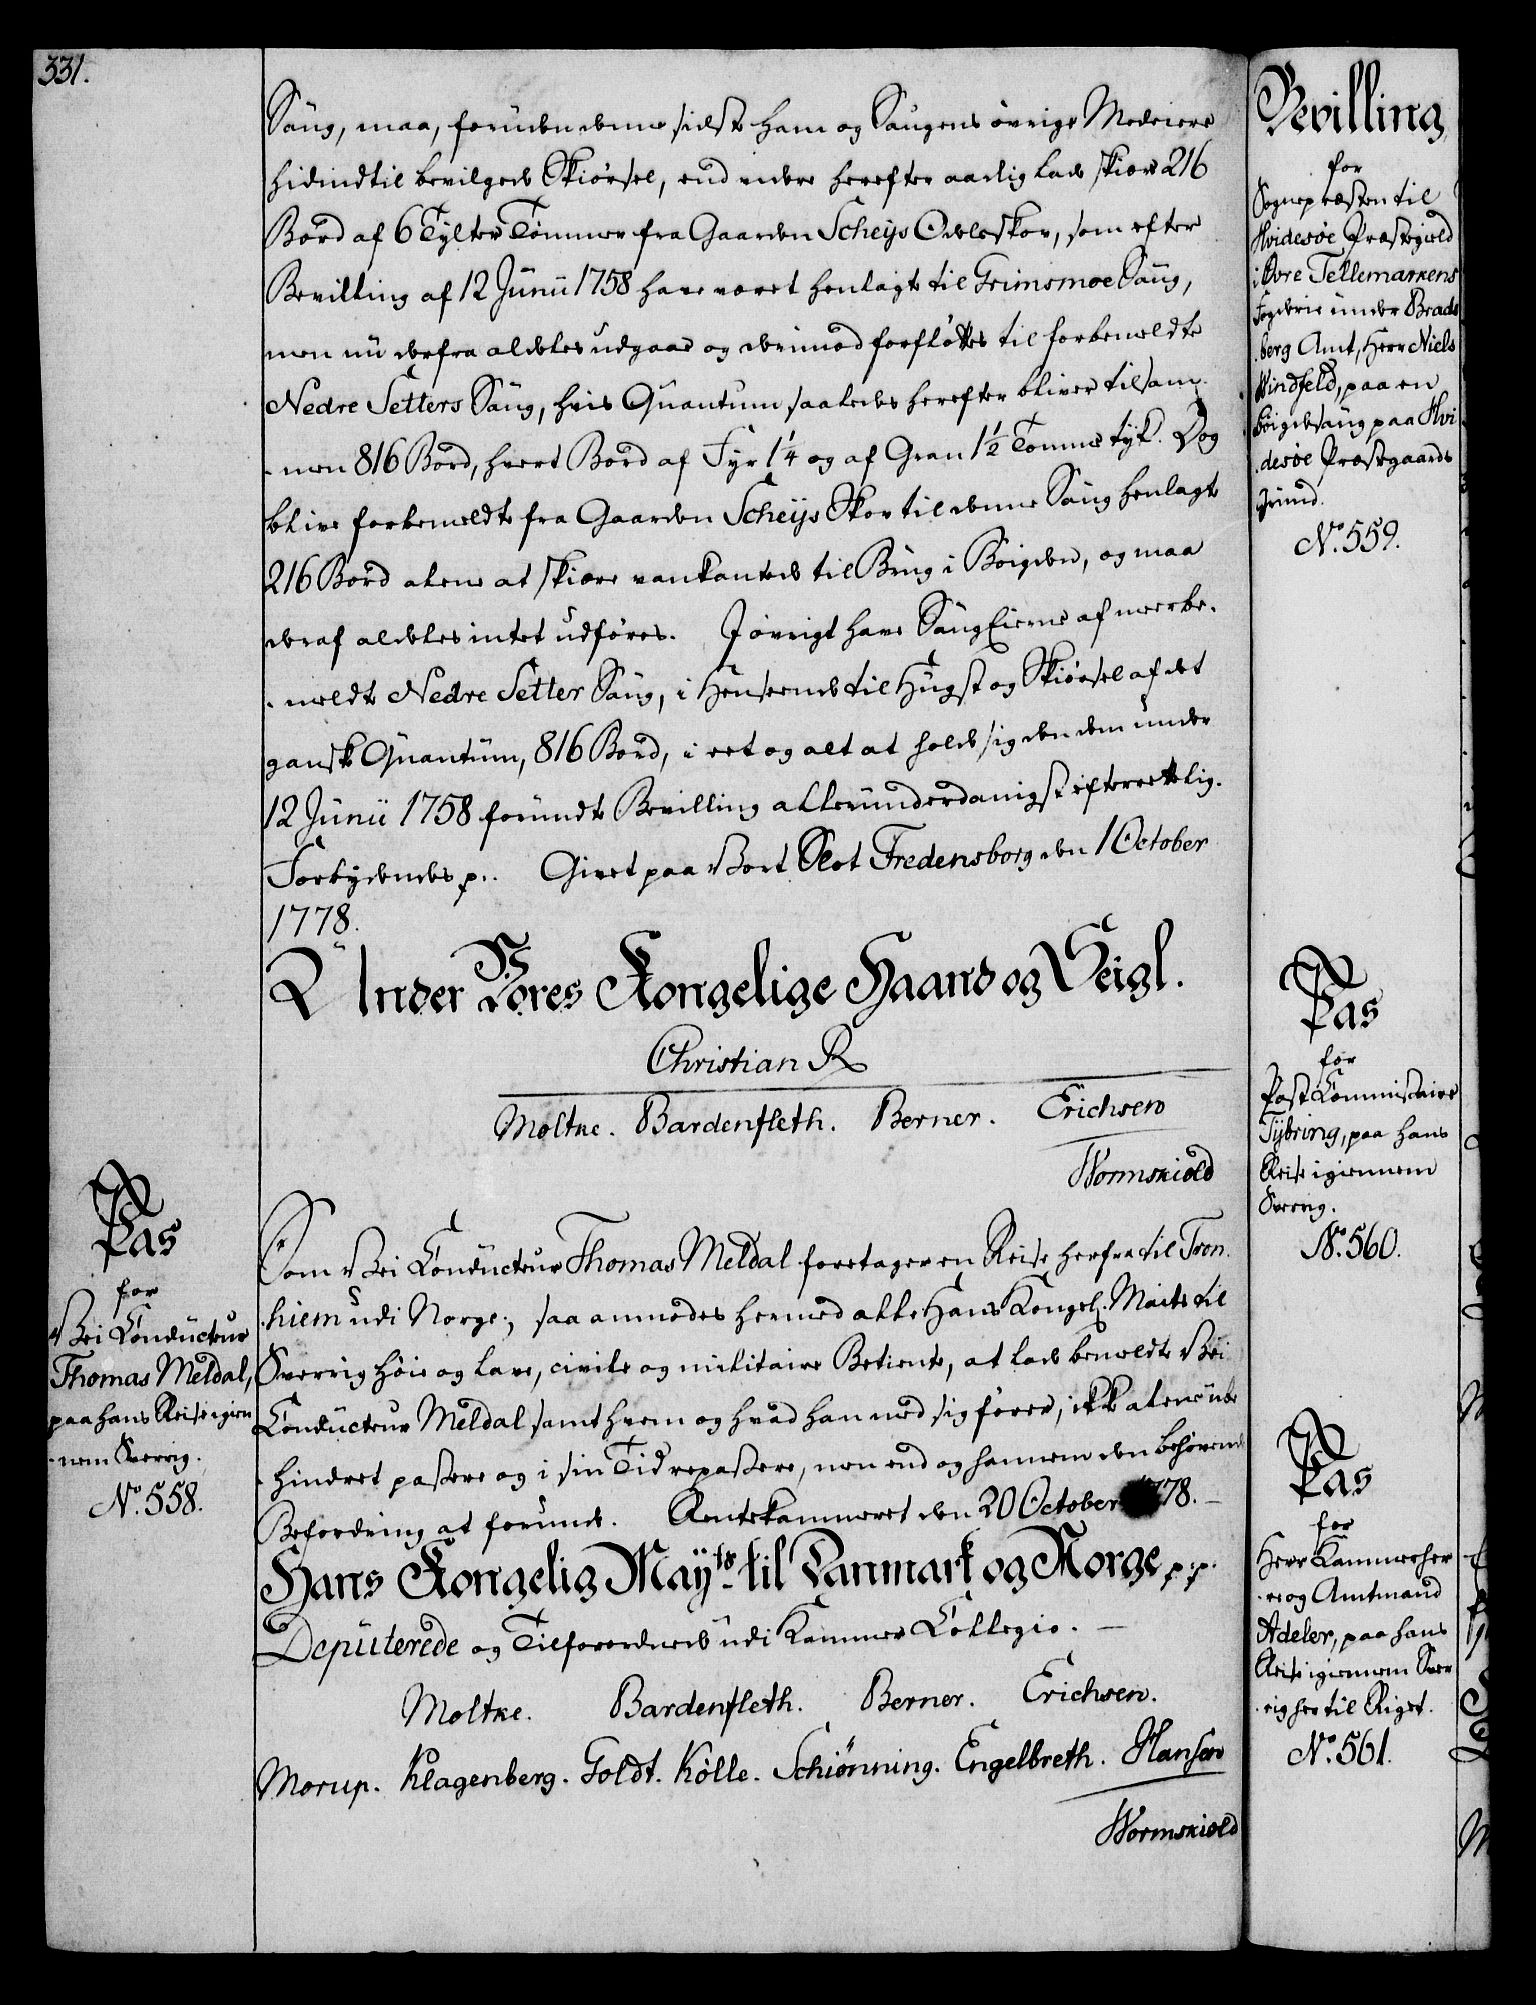 331.
Saug, maa, foruden denne sidst ham og Saugens øvrige Medeiere
hidindtil bevilgede Skiørsel, end videre herefter aarlig lade skiære 216
Bord af 6 Tylter Tømmer fra Gaarden Scheijs Odelsskov, som efter
Bevilling af 12 Junii 1758 have været henlagt til Grimsmoe Saug,
men nu derfra aldeles udgaae og derimod forfløttes til forbemeldte
Nedre Setters Saug, hvis Quantum saaledes herefter bliver tilsam-
-men 816 Bord, hvert Bord af Fyr 1¼ og af Gran 1½ Tomme tyk. Dog
blive forbemeldte fra Gaarden Scheijs Skov til denne Saug henlagte
216 Bord alene at skiære vankantede til Brug i Bøigden, og maa
deraf aldeles intet udføres. I øvrigt have Saug Eierne af meerbe-
-meldte Nedre Setter Saug, i Henseende til Hugst og Skiørsel af det
ganske Quantum, 816 Bord, i eet og alt at holde sig den dem under
12 Junii 1758 forundte Bevilling allerunderdanigst efterrettelig.
Forbydendes p. Givet paa Vort Slot Fredensborg den 1 October
1778.
Under Vores Kongelige Haand og Seigl.
Christian R
Moltke. Bardenfleth. Berner. Erichsen
Wormskiold
Pas
for
Vei Conducteur
Thomas Meldal,
paa hans Reise igien-
-nem Sverrig.
No. 558.
Som Vei Conducteur Thomas Meldal foretager en Reise herfra til Tron-
-hiem udi Norge, saa anmodes hermed alle Hans Kongel. Maits til
Sverrig høie og lave, civile og militaire Betiente, at lade bemeldte Vei
Conducteur Meldal samt hvem og hvad han med sig fører, ikke alene ube-
-hindret passere og i sin Tid repassere, men end og hannem den behøvende
Befordring at forunde. Rentekammeret den 20 October 1778.
Hans Kongelig Mayts til Danmark og Norge p. p.
Deputerede og Tilforordnede udi Kammer Collegio.
Moltke. Bardenfleth. Berner. Erichsen.
Morup. Klagenberg. Goldt. Kölle. Schiønning. Engelbreth. Hansen
Wormskiold
Bevilling
for
Sognepræsten til
Hvidesøe Præstegield
i Øvre Tellemarkens
Fogderie under Brads-
-berg Amt, Herr Niels
Windfeld, paa en
Bøigdesaug paa Hvi-
-desøe Præstegaards
Grund.
No. 559.
Pas
for
Post Commissaire
Tybring, paa hans
Reise igiennem
Sverrig.
No. 560.
Pas
for
Herr Kammerher-
-re og Amtmand
Adeler, paa hans
Reise igiennem Sver-
-rig her til Riget.
No. 561.